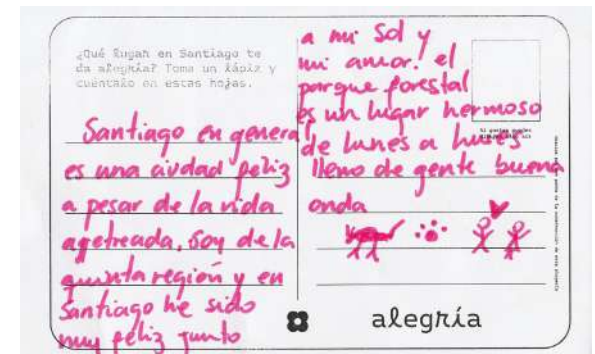 ¿Qué lugar en Santiago te
da alegría? Toma un lápiz y
cuéntalo en estas hojas.
Santiago en general
es una ciudad feliz
a pesar de la vida
agetreada. Soy de la
quinta región y en
Santiago he sido
muy feliz junto
a mi Sol y
mi amor. el
parque forestal
es un lugar hermoso
de lunes a lunes
lleno de gente buena
onda
alegría